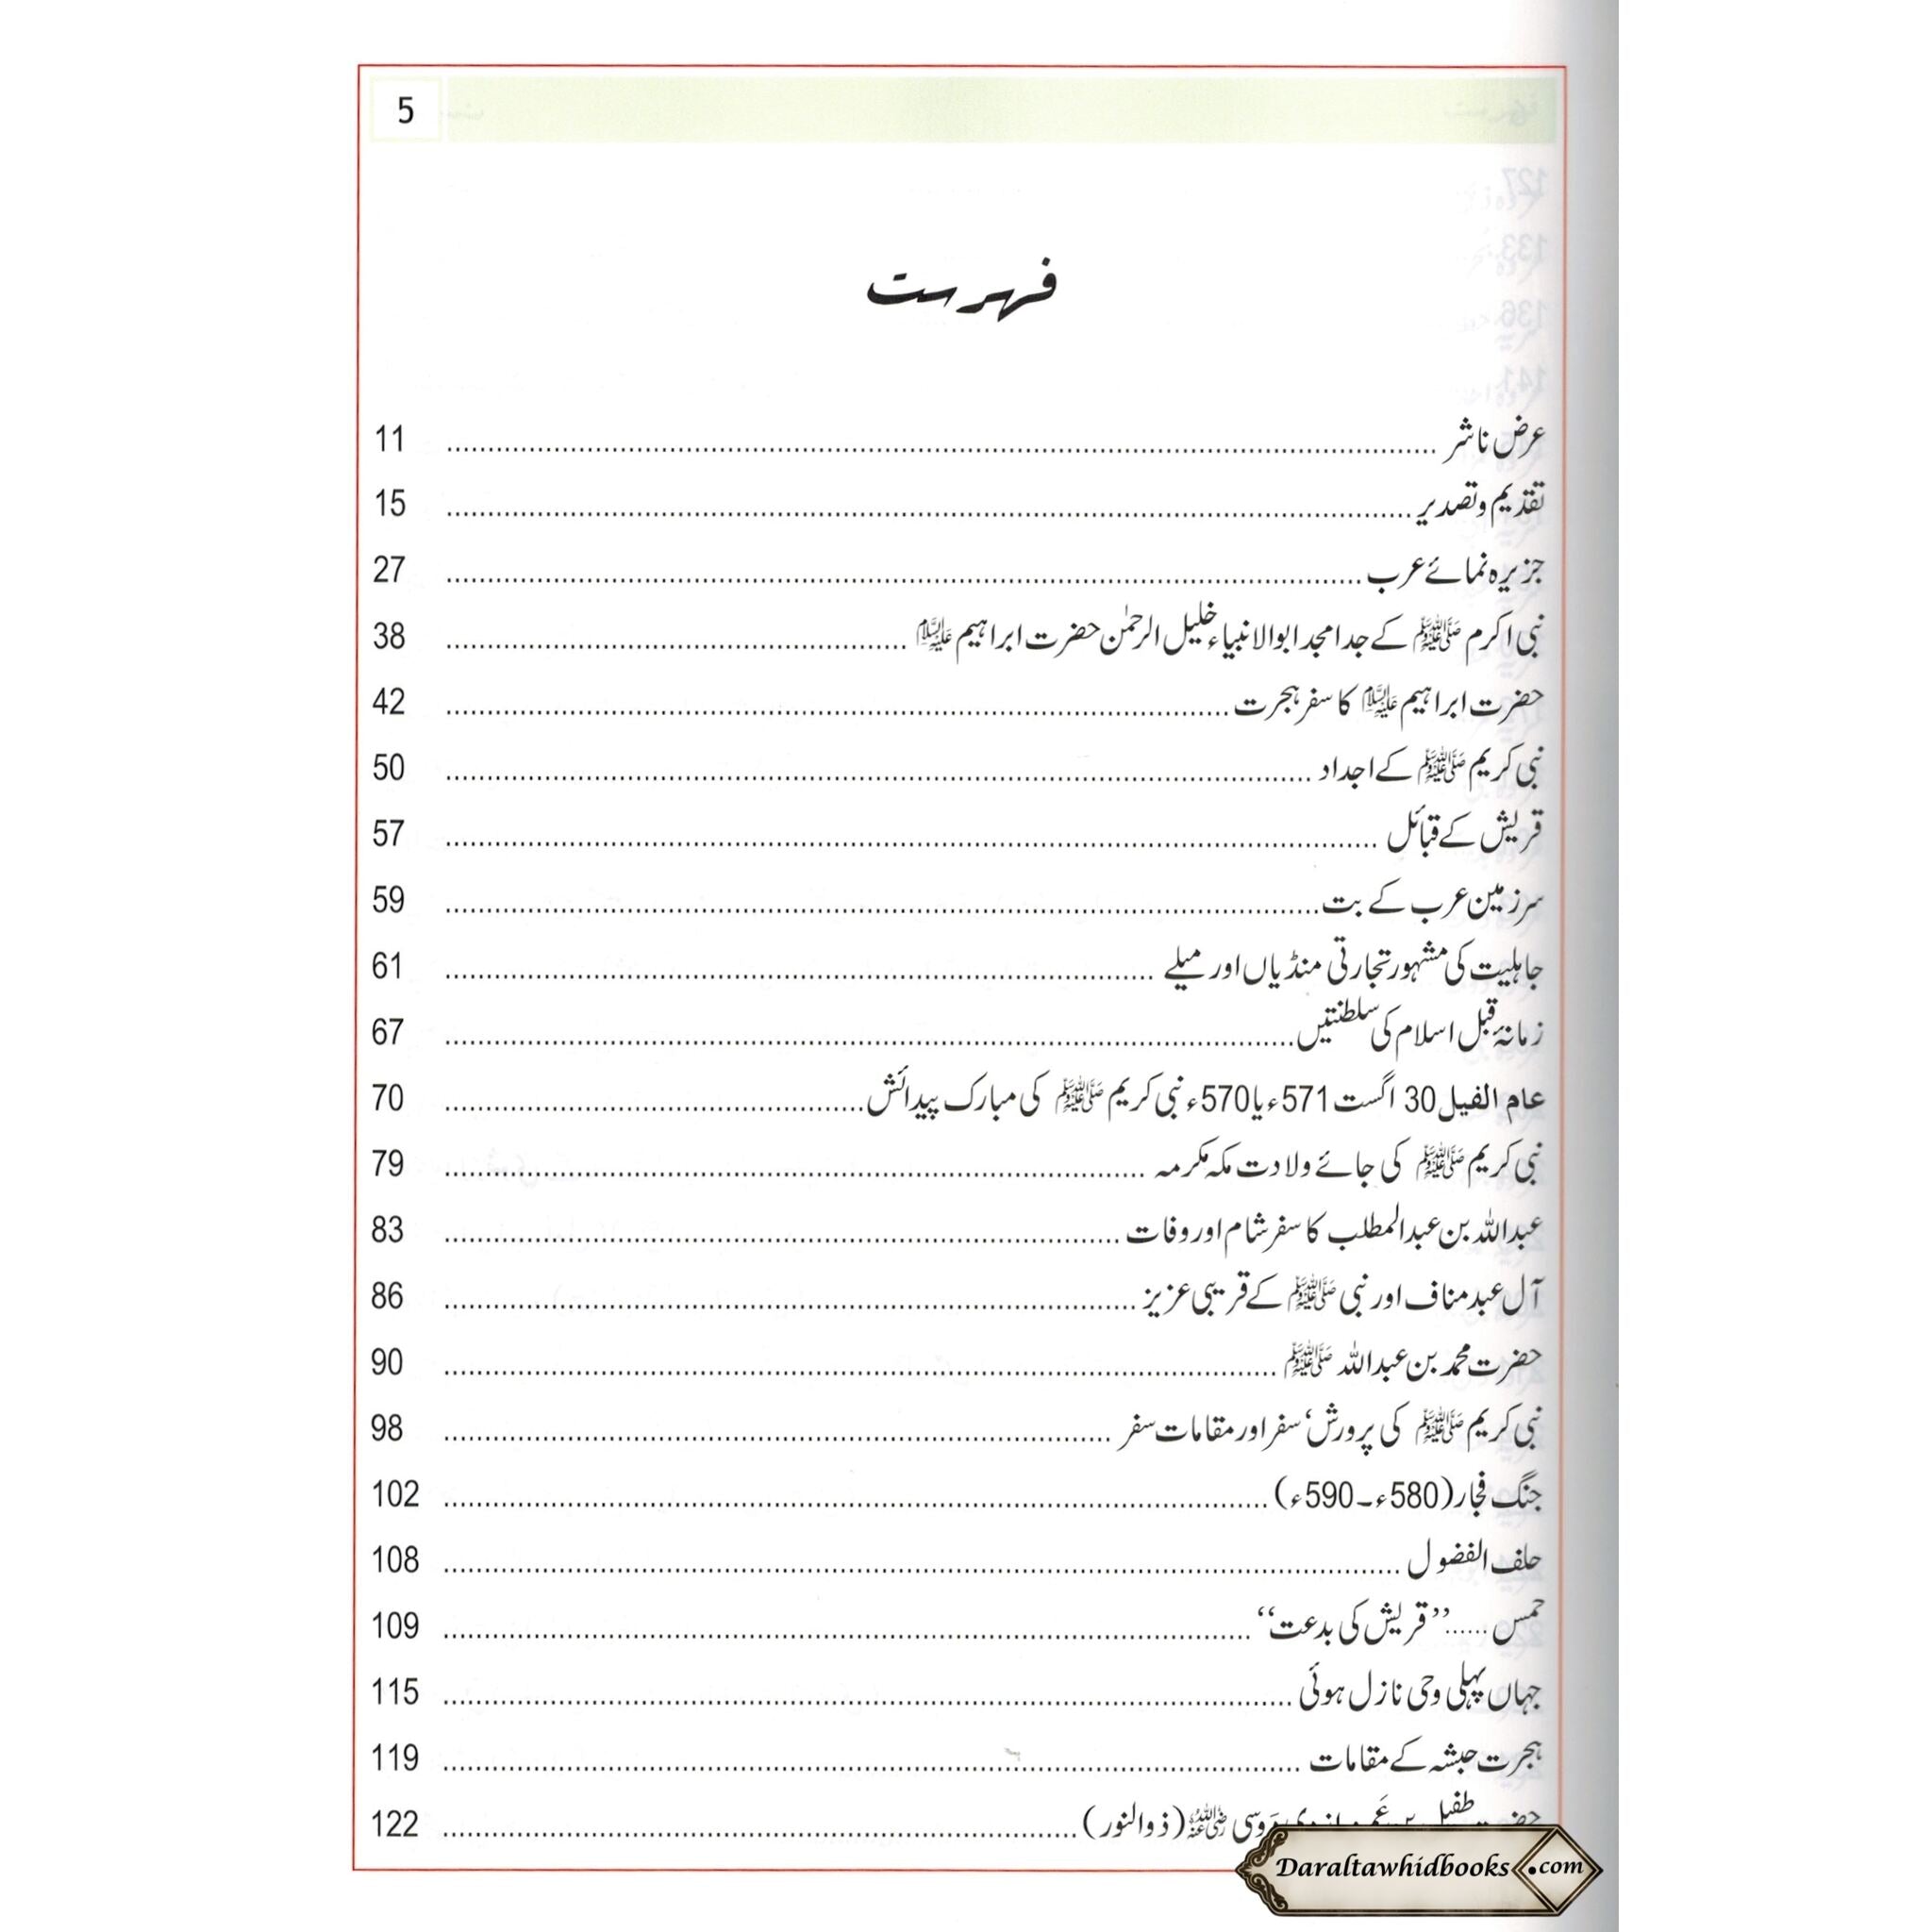 5
فہرست
عرض ناشر 11
تقدیم و تصدیر 15
جزیرہ نمائے عرب 27
نبی اکرم ﷺ کے جد امجد ابوالانبیاء خلیل الرحمٰن حضرت ابراہیم علیہ السلام 38
حضرت ابراہیم علیہ السلام کا سفر ہجرت 42
نبی کریم ﷺ کے اجداد 50
قریش کے قبائل 57
سرزمین عرب کے بت 59
جاہلیت کی مشہور تجارتی منڈیاں اور میلے 61
زمانۂ قبل اسلام کی سلطنتیں 67
عام الفیل 30 اگست 571ء یا 570ء نبی کریم ﷺ کی مبارک پیدائش 70
نبی کریم ﷺ کی جائے ولادت مکہ مکرمہ 79
عبداللہ بن عبدالمطلب کا سفر شام اور وفات 83
آل عبد مناف اور نبی ﷺ کے قریبی عزیز 86
حضرت محمد بن عبداللہ ﷺ 90
نبی کریم ﷺ کی پرورش‘ سفر اور مقامات سفر 98
جنگ فجار (580ء۔590ء) 102
حلف الفضول 108
حمس ...... ’’قریش کی بدعت‘‘ 109
جہاں پہلی وحی نازل ہوئی 115
ہجرت حبشہ کے مقامات 119
حضرت طفیل بن عَمرو ازدی دَوسی رضی اللہ عنہ (ذوالنور) 122
Daraltawhidbooks.com